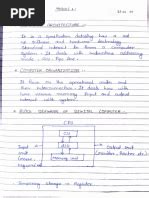 MODULE 1
COMPUTER ARCHITECTURE
It is a specification detailing how a set
of software and hardware technology
standard interact to form a computer
system. It deals with instructions addressing
mode, CPU,
COMPUTER ORGANISATION
It focus on the operational units and
their interconnection. It deals with how
with various memory, input and output
interact with each other.
BLOCK DIAGRAM OF DIGITAL COMPUTER
CPU
CU
Input
unit
(mouse,
keyboard)
ALU
Memory unit
Output unit
(monitor, Printer etc)
Temporary storage → Register